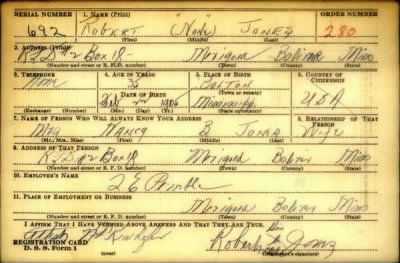 SERIAL NUMBER 1. NAME (Print) ORDER NUMBER
692 ROBERT (None) JONES 280
(First) (Middle) (Last)
2. ADDRESS (Print)
RFD #2 Box 18 Merigold Bolivar Miss
(Number and street or R. F. D. number) (Town) (County) (State)
3. TELEPHONE 4. AGE IN YEARS 5. PLACE OF BIRTH 6. COUNTRY OF CITIZENSHIP
None
DATE OF BIRTH (Town or county)
Feb Mississippi USA
(Exchange) (Number) (Mo.) (Day) (Yr.) (State or country)
7. NAME OF PERSON WHO WILL ALWAYS KNOW YOUR ADDRESS 8. RELATIONSHIP OF THAT PERSON
Mrs Nancy B Jones Wife
(Mr., Mrs., Miss) (First) (Middle) (Last)
9. ADDRESS OF THAT PERSON
RFD #2 Box 18 Merigold Bolivar Miss
(Number and street or R. F. D. number) (Town) (County) (State)
10. EMPLOYER'S NAME
11. PLACE OF EMPLOYMENT OR BUSINESS
Merigold Bolivar Miss
(Number and street or R. F. D. number) (Town) (County) (State)
I AFFIRM THAT I HAVE VERIFIED ABOVE ANSWERS AND THAT THEY ARE TRUE.
REGISTRATION CARD Robert Jones
D. S. S. Form 1 (over) (Registrant's signature)